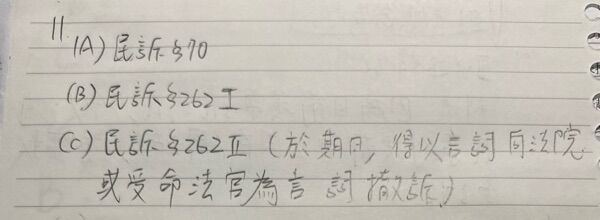 11.
(A) 民訴§70
(B) 民訴§262 I
(C) 民訴§262 II (於期日,得以言詞向法院
或受命法官為言詞撤訴)